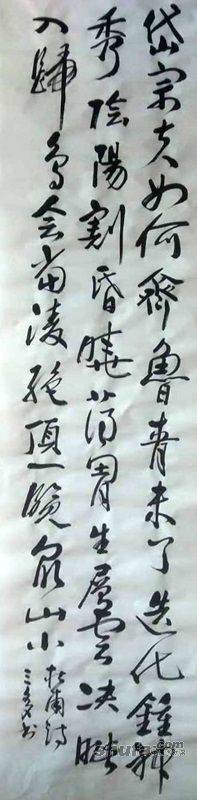 岱宗夫如何齊魯青未了造化鍾神
秀陰陽割昏曉荡胷生層雲决眦
入歸鳥會當凌絶頂一覽眾山小
杜甫詩